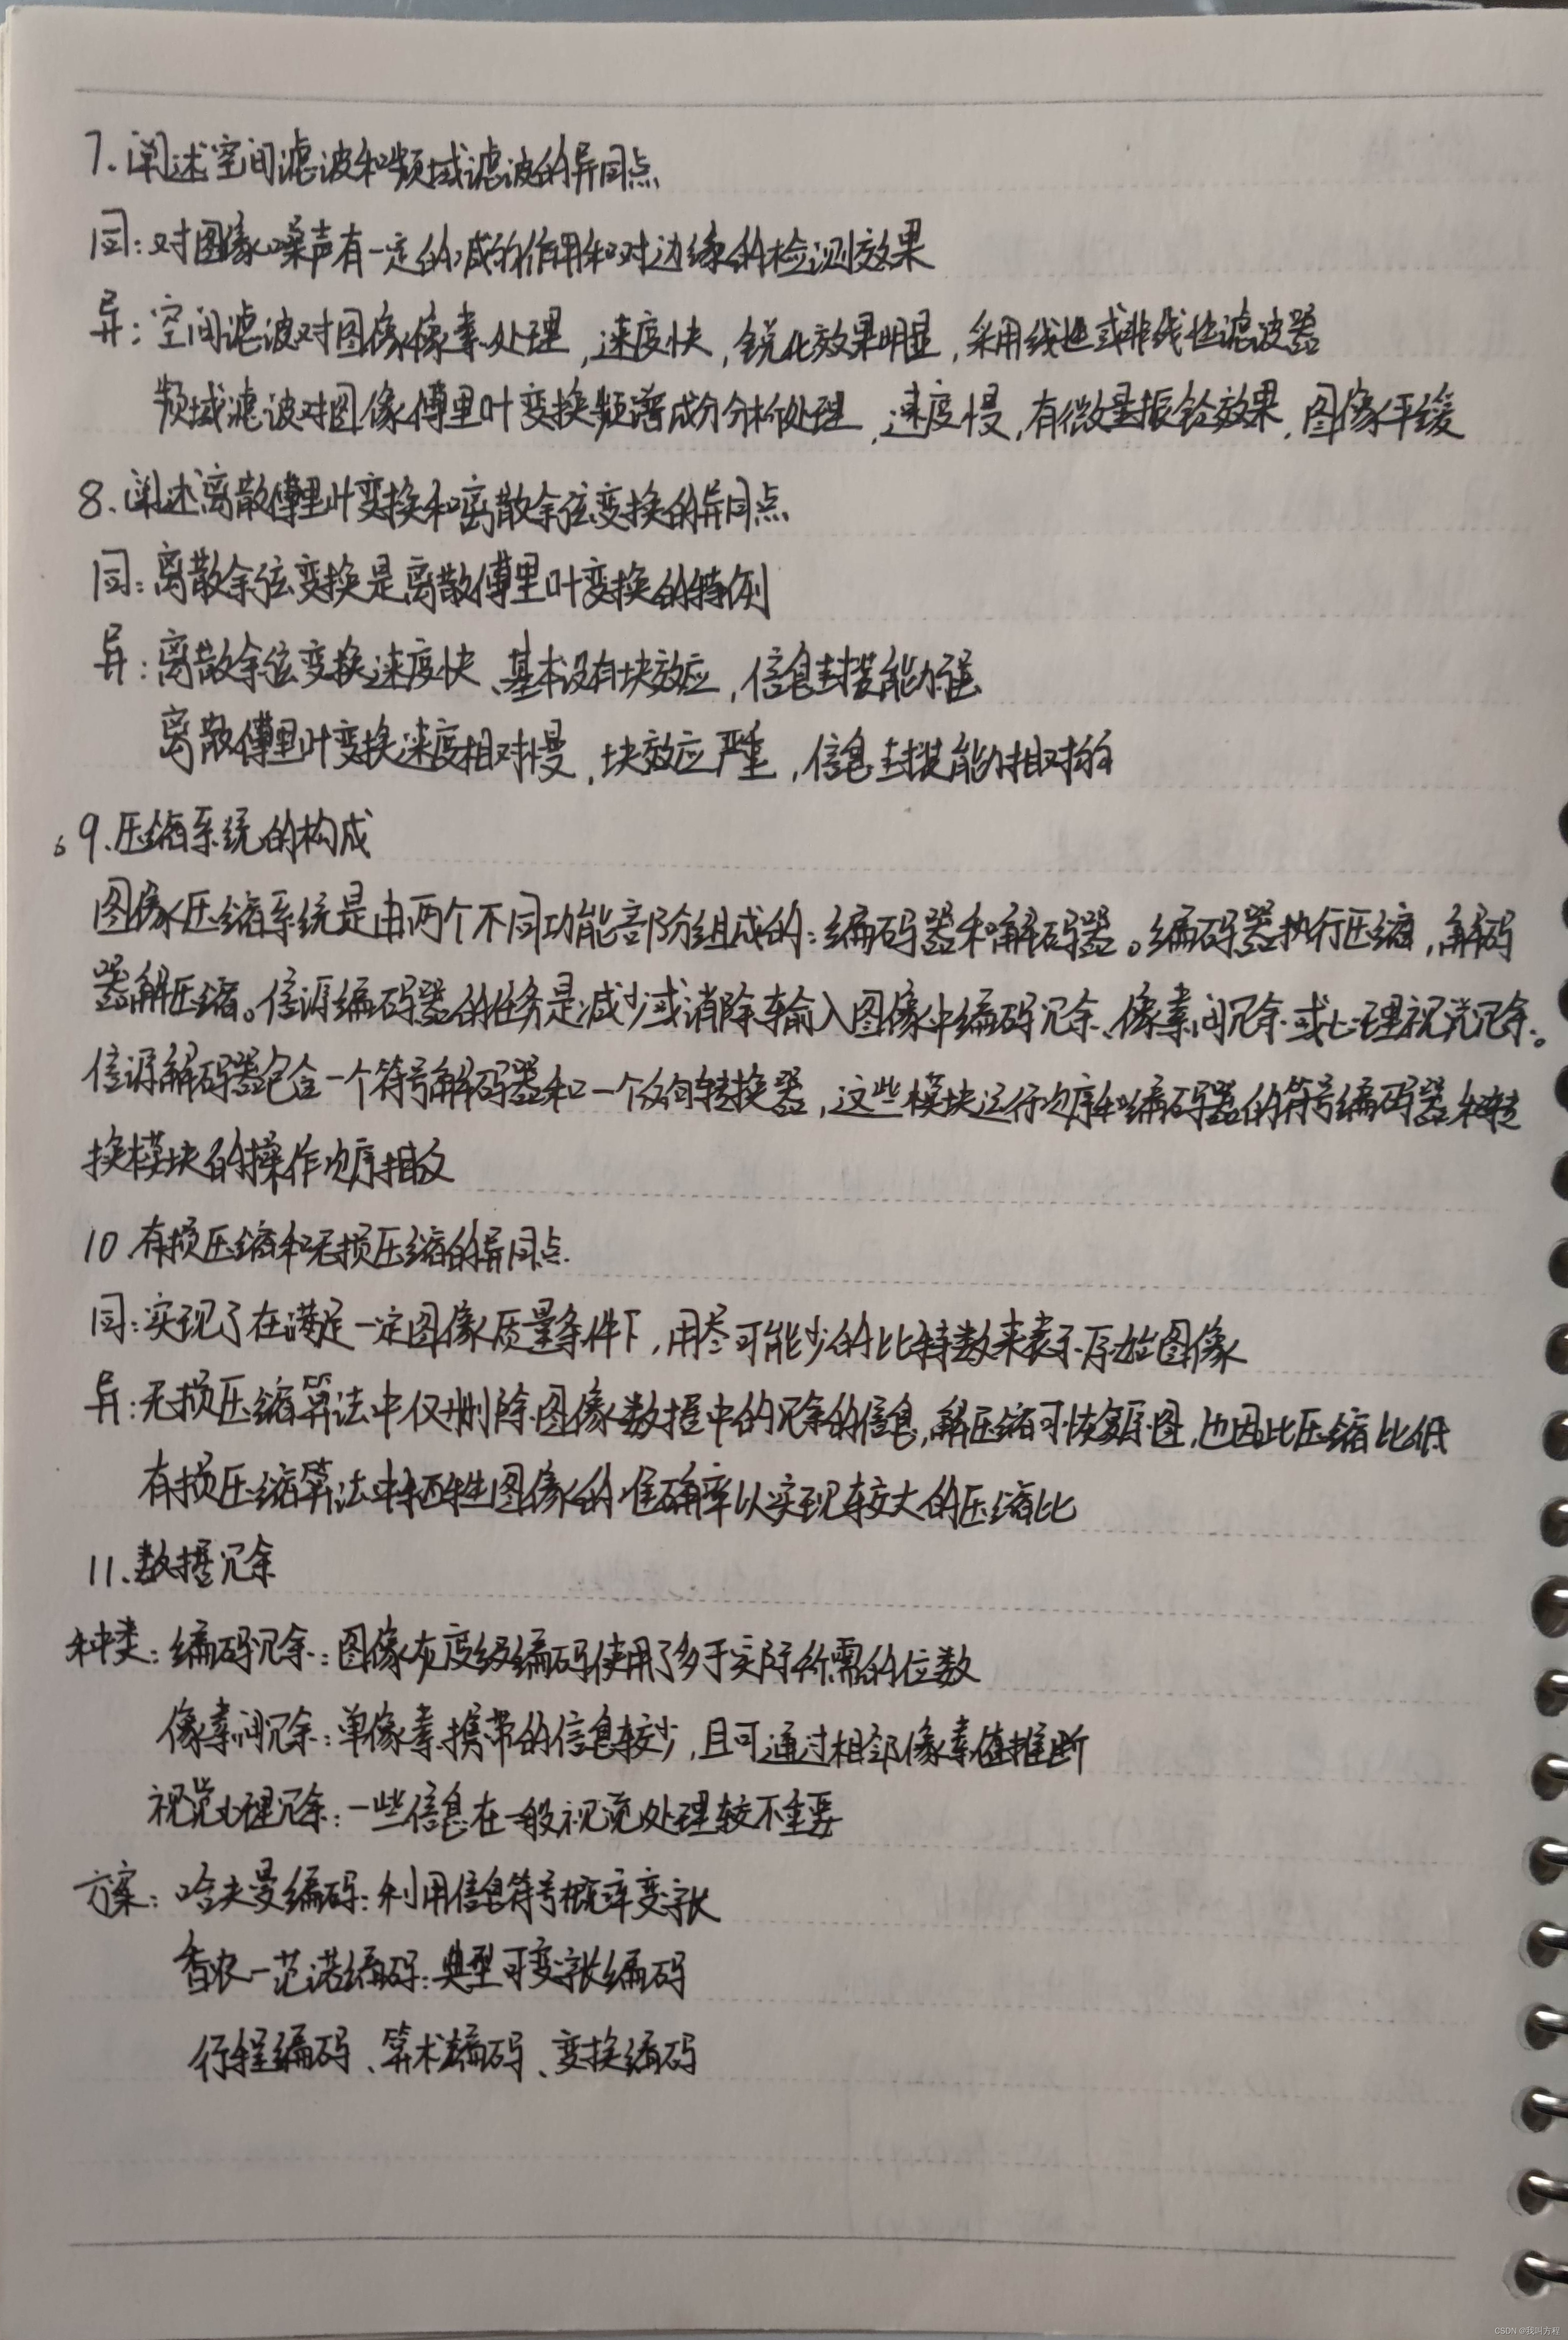 7.阐述空间滤波和频域滤波的异同点
同:对图像噪声有一定的减的作用和对边缘的检测效果
异:空间滤波对图像像素处理,速度快,锐化效果明显,采用线性或非线性滤波器
频域滤波对图像傅里叶变换频谱成分分析处理,速度慢,有微量振铃效果,图像平缓
8.阐述离散傅里叶变换和离散余弦变换的异同点
同:离散余弦变换是离散傅里叶变换的特例
异:离散余弦变换速度快、基本没有块效应,信息封装能力强
离散傅里叶变换速度相对慢,块效应严重,信息封装能力相对弱
6 9.压缩系统的构成
图像压缩系统是由两个不同功能部分组成的:编码器和解码器。编码器执行压缩,解码
器解压缩。信源编码器的任务是减少或消除输入图像中编码冗余、像素间冗余或心理视觉冗余。
信源解码器包含一个符号解码器和一个反向转换器,这些模块运行次序和编码器的符号编码器和转
换模块的操作次序相反
10.有损压缩和无损压缩的异同点.
同:实现了在满足一定图像质量条件下,用尽可能少的比特数来表示原始图像
异:无损压缩算法中仅删除图像数据中的冗余的信息,解压缩可恢复原图,也因此压缩比低
有损压缩算法中牺牲图像的准确率以实现较大的压缩比
11.数据冗余
种类:编码冗余:图像灰度级编码使用了多于实际所需的位数
像素间冗余:单像素携带的信息较少,且可通过相邻像素值推断
视觉心理冗余:一些信息在一般视觉处理较不重要
方案:哈夫曼编码:利用信息符号概率变字长
香农-范诺编码:典型可变字长编码
行程编码、算术编码、变换编码
CSDN @我叫方程